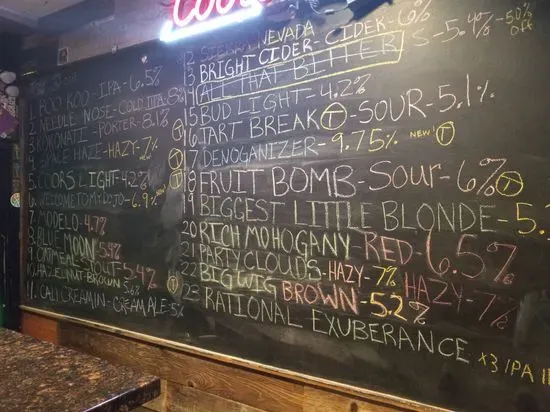 Coors
1. KOO KOO - IPA - 6.5%
2. NEEDLE NOSE - COLD IPA - 8%
3. KOKONATI - PORTER - 8.1%
4. SPACE HAZE - HAZY - 7% T
5. COORS LIGHT - 4.2%
6. WELCOME TO MY DOJO - 6.9% T
7. MODELO - 4.7%
8. BLUE MOON 5.4%
9. OATMEAL STOUT - 5.4%
10. HAZELNUT BROWN 5.6% T
11. CALI CREAMIN - CREAM ALE - 5%
12 SIERRA NEVADA
13 BRIGHT CIDER - CIDER - 6%
14 ALL THAT BETTER S - 5.4% - 50% Off
15 BUD LIGHT - 4.2%
16 TART BREAK T - SOUR - 5.1%
17 DENOGANIZER - 9.75% NEW! T
18 FRUIT BOMB - SOUR - 6% T
19 BIGGEST LITTLE BLONDE - 5.
20 RICH MOHOGANY - RED - 6.5%
21 PARTY CLOUDS - HAZY - 7%
22 BIG WIG BROWN - 5.2% HAZY - 7%
23 RATIONAL EXUBERANCE X3 IPA